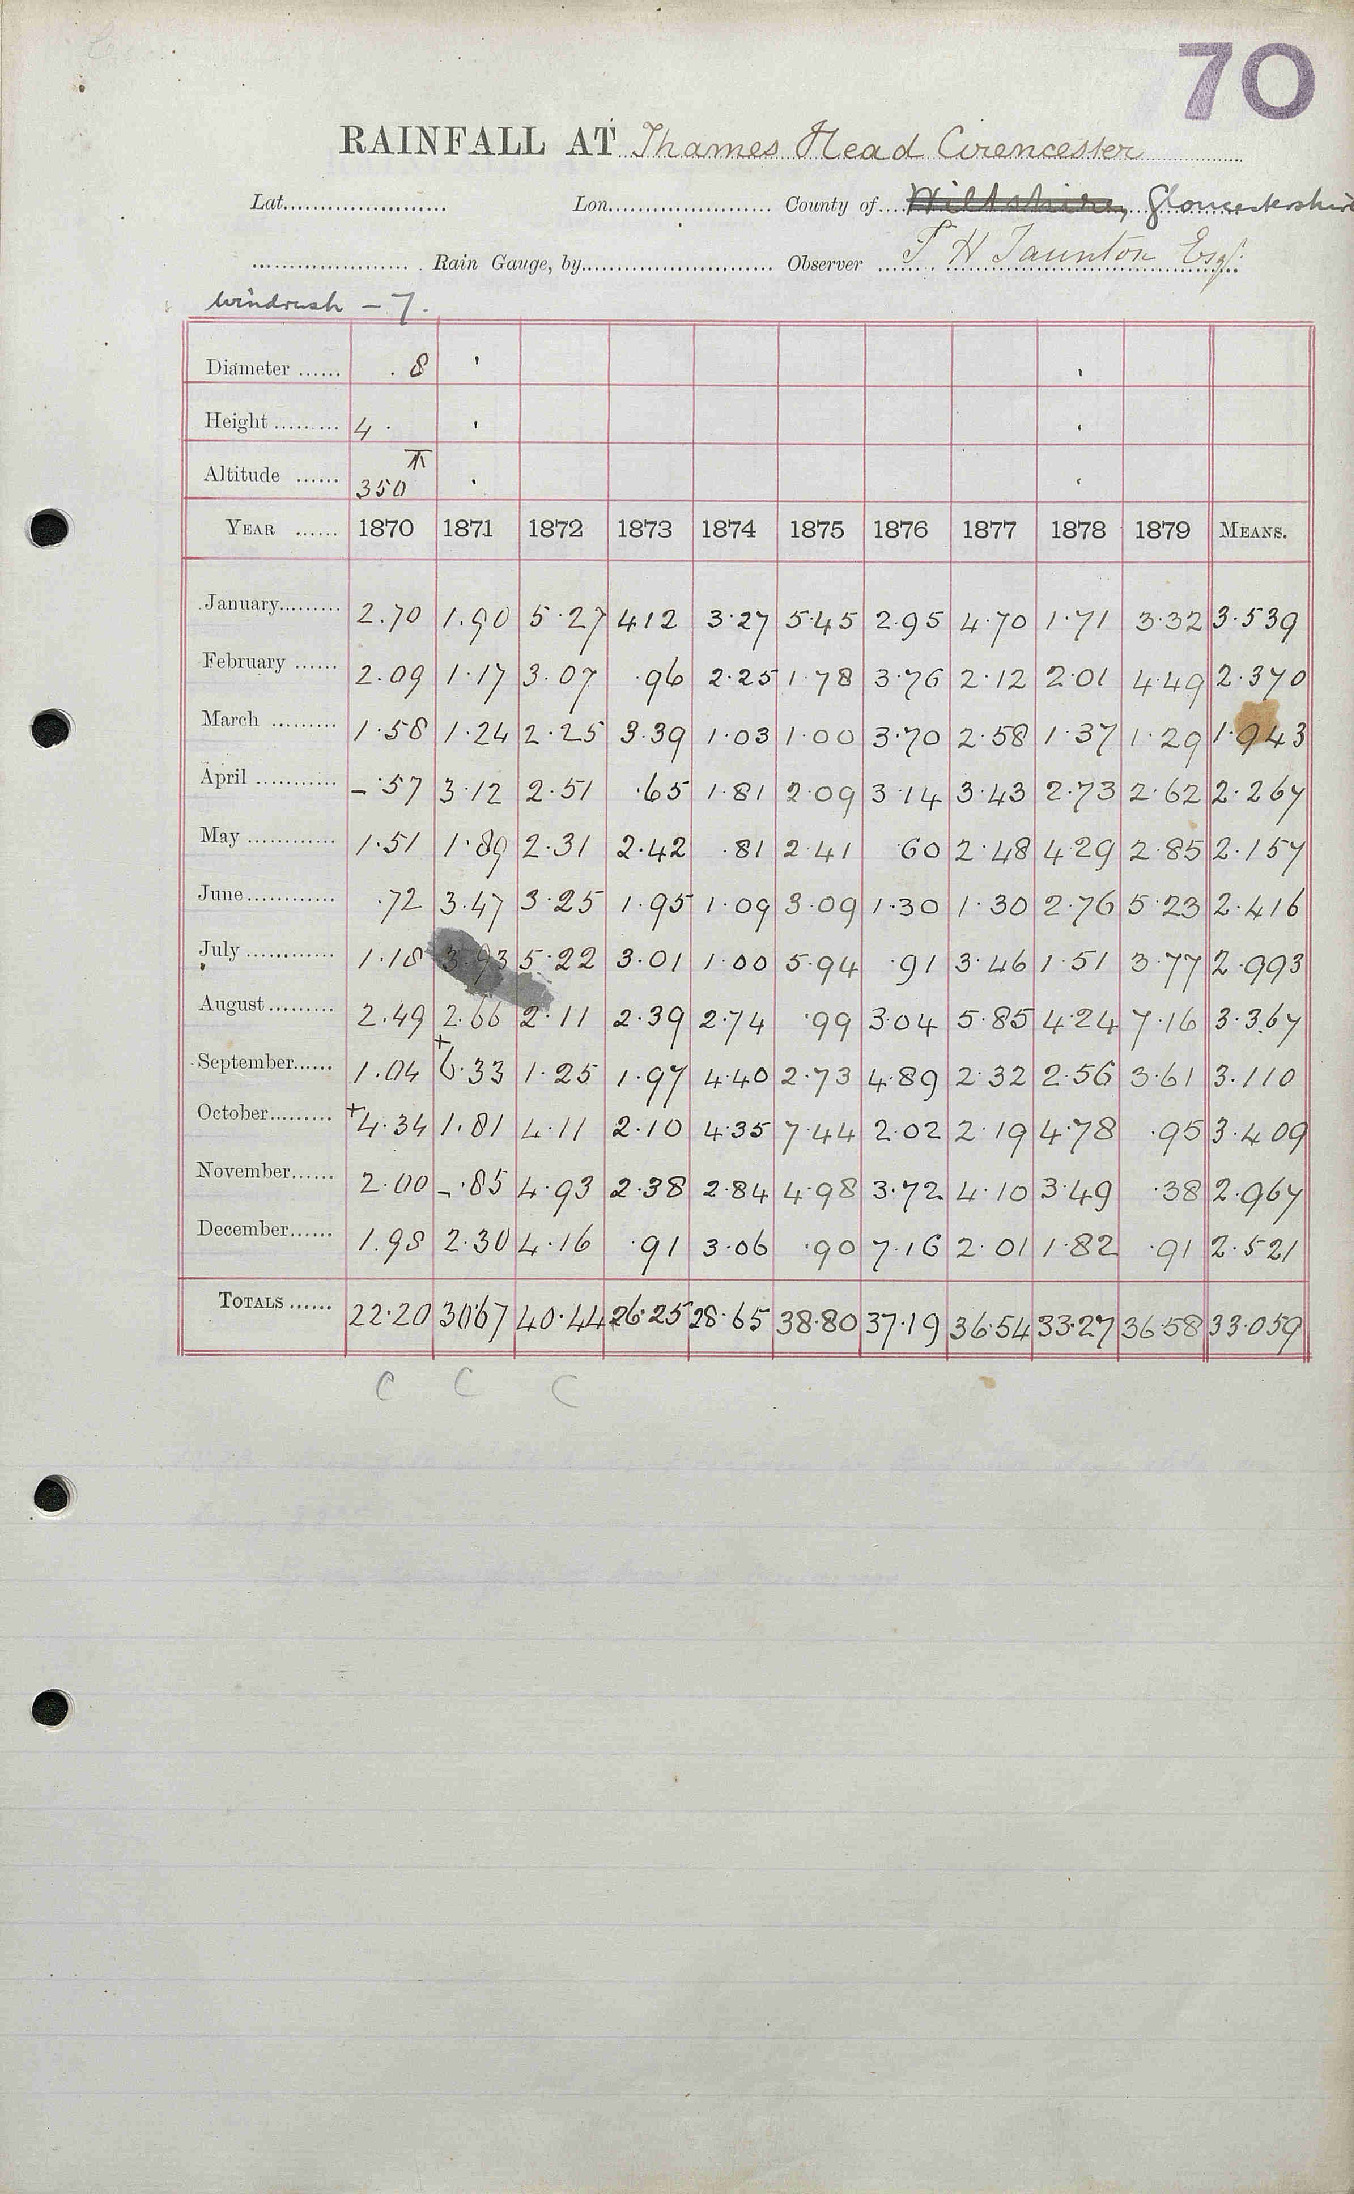 70
RAINFALL AT Thames Head Cirencester
Lat. Lon. County of Wiltshire, Gloucestershire
Rain Gauge, by Observer T H Taunton Esqr.
Windrush – 7.
Diameter ...... 8
Height ......... 4
Altitude ...... 350 T
YEAR ...... 1870 1871 1872 1873 1874 1875 1876 1877 1878 1879 MEANS.
January......... 2.70 1.90 5.27 4.12 3.27 5.45 2.95 4.70 1.71 3.32 3.539
February ...... 2.09 1.17 3.07 .96 2.25 1.78 3.76 2.12 2.01 4.49 2.370
March ......... 1.58 1.24 2.25 3.39 1.03 1.00 3.70 2.58 1.37 1.29 1.943
April ............ – .57 3.12 2.51 .65 1.81 2.09 3.14 3.43 2.73 2.62 2.267
May ............ 1.51 1.89 2.31 2.42 .81 2.41 .60 2.48 4.29 2.85 2.157
June............ .72 3.47 3.25 1.95 1.09 3.09 1.30 1.30 2.76 5.23 2.416
July ............ 1.18 3.93 5.22 3.01 1.00 5.94 .91 3.46 1.51 3.77 2.993
August ......... 2.49 2.66 2.11 2.39 2.74 .99 3.04 5.85 4.24 7.16 3.367
September...... 1.04 +6.33 1.25 1.97 4.40 2.73 4.89 2.32 2.56 3.61 3.110
October......... +4.34 1.81 4.11 2.10 4.35 7.44 2.02 2.19 4.78 .95 3.409
November...... 2.00 – .85 4.93 2.38 2.84 4.98 3.72 4.10 3.49 .38 2.967
December...... 1.98 2.30 4.16 .91 3.06 .90 7.16 2.01 1.82 .91 2.521
TOTALS ...... 22.20 30.67 40.44 26.25 28.65 38.80 37.19 36.54 33.27 36.58 33.059
C C C